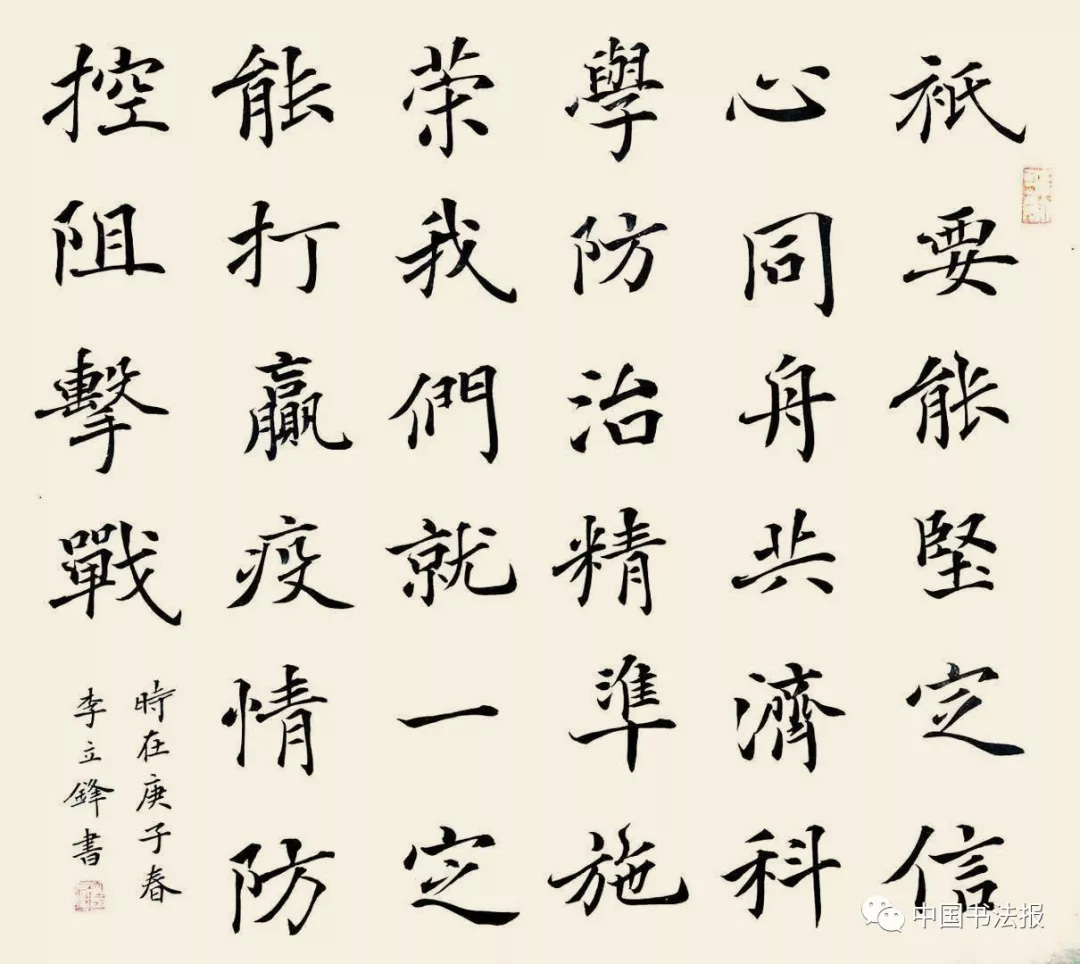 衹要能堅定信
心同舟共濟科
學防治精準施
策我們就一定
能打贏疫情防
控阻擊戰
時在庚子春
李立鋒書
中国书法报